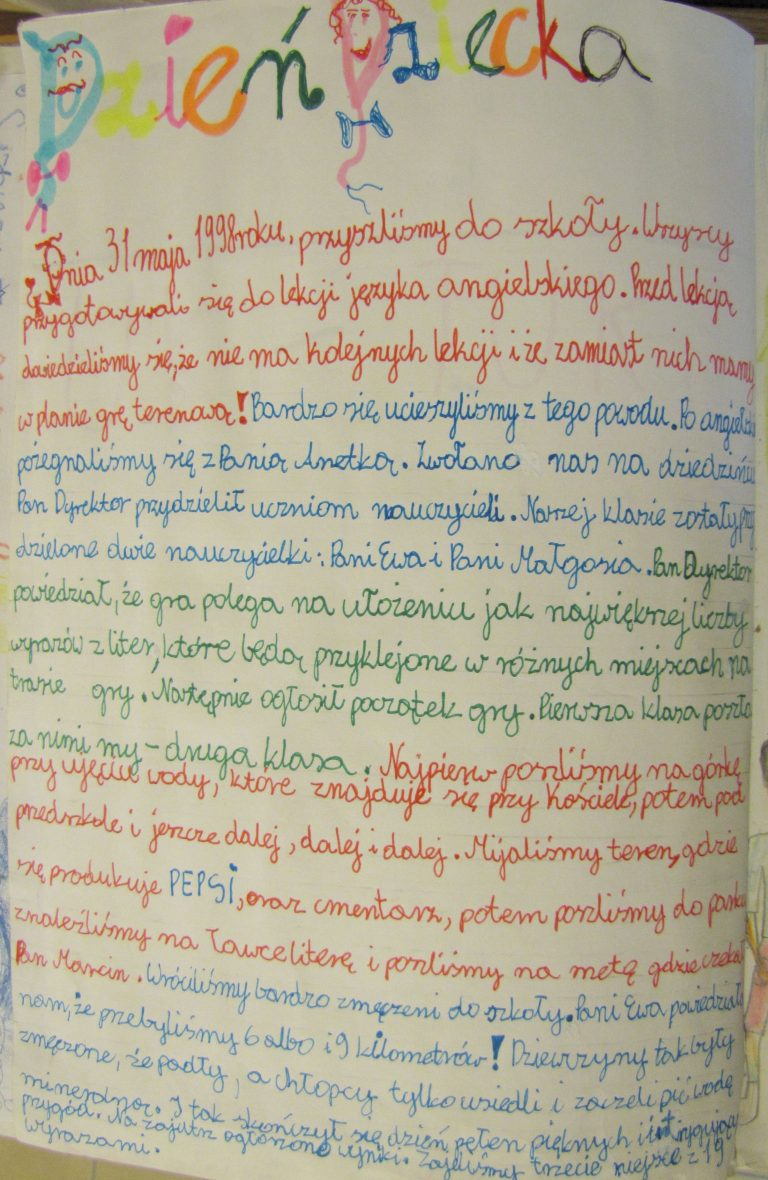 Dzień Dziecka
Dnia 31 maja 1998roku, przyszliśmy do szkoły. Wszyscy
przygotowywali się do lekcji języka angielskiego. Przed lekcją
dowiedzieliśmy się, że nie ma kolejnych lekcji i że zamiast nich mamy
w planie grę terenową! Bardzo się ucieszyliśmy z tego powodu. Po
pożegnaliśmy się z Panią Anetką. Zwołano nas na dziedziniec
Pan Dyrektor przydzielił uczniom nauczycieli. Naszej klasie zostały przy
dzielone dwie nauczycielki: Pani Ewa i Pani Małgosia. Pan Dyrektor
powiedział, że gra polega na ułożeniu jak największej liczby
wyrazów z liter, które będą przyklejone w różnych miejscach na
trasie gry. Następnie ogłosił początek gry. Pierwsza klasa poszła
za nimi my - druga klasa. Najpierw poszliśmy na górkę
przy ujęciu wody, które znajduje się przy Kościele, potem pod
przedszkole i jeszcze dalej, dalej i dalej. Mijaliśmy teren, gdzie
się produkuje PEPSI, oraz cmentarz, potem poszliśmy do parku
znaleźliśmy na ławce literę i poszliśmy na metę gdzie czekał
Pan Marcin. Wróciliśmy bardzo zmęczeni do szkoły. Pani Ewa powiedziała
nam, że przebyliśmy 6 albo i 9 kilometrów! Dziewczyny tak były
zmęczone, że padły, a chłopcy tylko usiedli i zaczeli pić wodę
mineralną. I tak skończył się dzień pełen pięknych i
przygód. Na zajutrz ogłoszono wyniki. Zajeliśmy trzecie miejsce z 19
wyrazami.